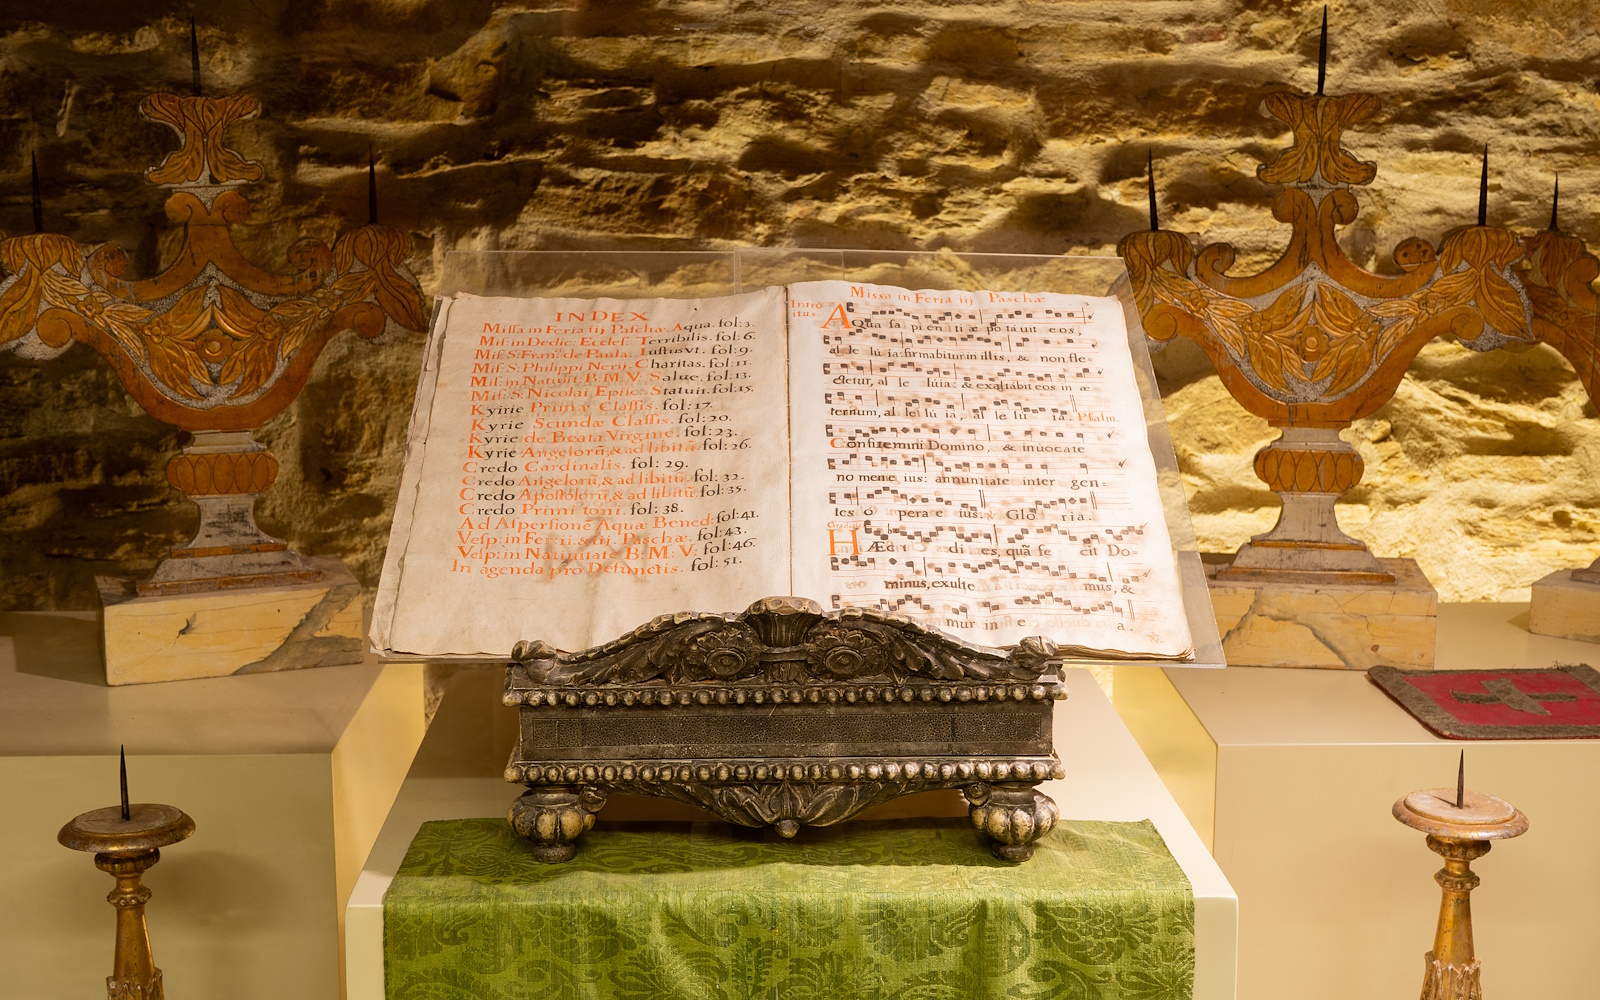 INDEX
Missa in Feria iij Paschæ. Aqua. fol: 3.
Mis. in Dedic. Eccles. Terribilis. fol: 6.
Mis. S. Fran. de Paula. Iustus Vt. fol: 9.
Mis. S. Philippi Nerij. Charitas. fol: 11.
Mis. in Nativit. B. M. V. Salue. fol: 13.
Mis. S. Nicolai Episc. Statuit. fol: 15.
Kyirie Primæ Classis. fol: 17.
Kyrie Scundæ Classis. fol: 20.
Kyrie de Beata Virgine. fol: 23.
Kyrie Angelorũ, & ad libitũ. fol: 26.
Credo Cardinalis. fol: 29.
Credo Angelorũ, & ad libitũ. fol: 32.
Credo Apostolorũ, & ad libitũ. fol: 35.
Credo Primi toni. fol: 38.
Ad Aspersionẽ Aquæ Bened: fol: 41.
Vesp: in Fer: ii. & iij. Paschæ. fol: 43.
Vesp: in Natiuitate B: M: V: fol: 46.
In agenda pro Defunctis. fol: 51.
Missa in Feria iij Paschæ 3
Intro
itus.
AQua sa pi en ti æ po tauit eos,
al le lú ia: firmabitur in illis, & non fle=
ctetur, al le lúia: & exaltabit eos in æ
ternum, al le lú ia, al le lú ia. Psalm.
Confitemini Domino, & inuocate
no men e ius: annuntiate inter gen=
tes ó pera e ius. Glo ria.
HÆc di es, quã fe cit Do=
minus, exulte mus, &
mur in e a.